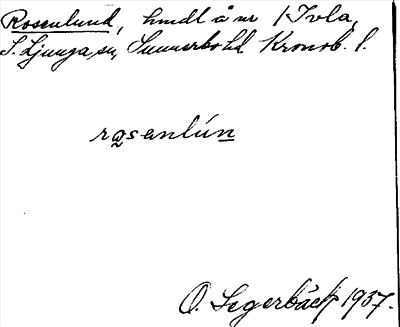 Rosenlund, hmdl å nr 1 Ivla,
S. Ljunga sn, Sunnerbo hd Kronob. l.
rasenlún
O. Segerbäck 1937.